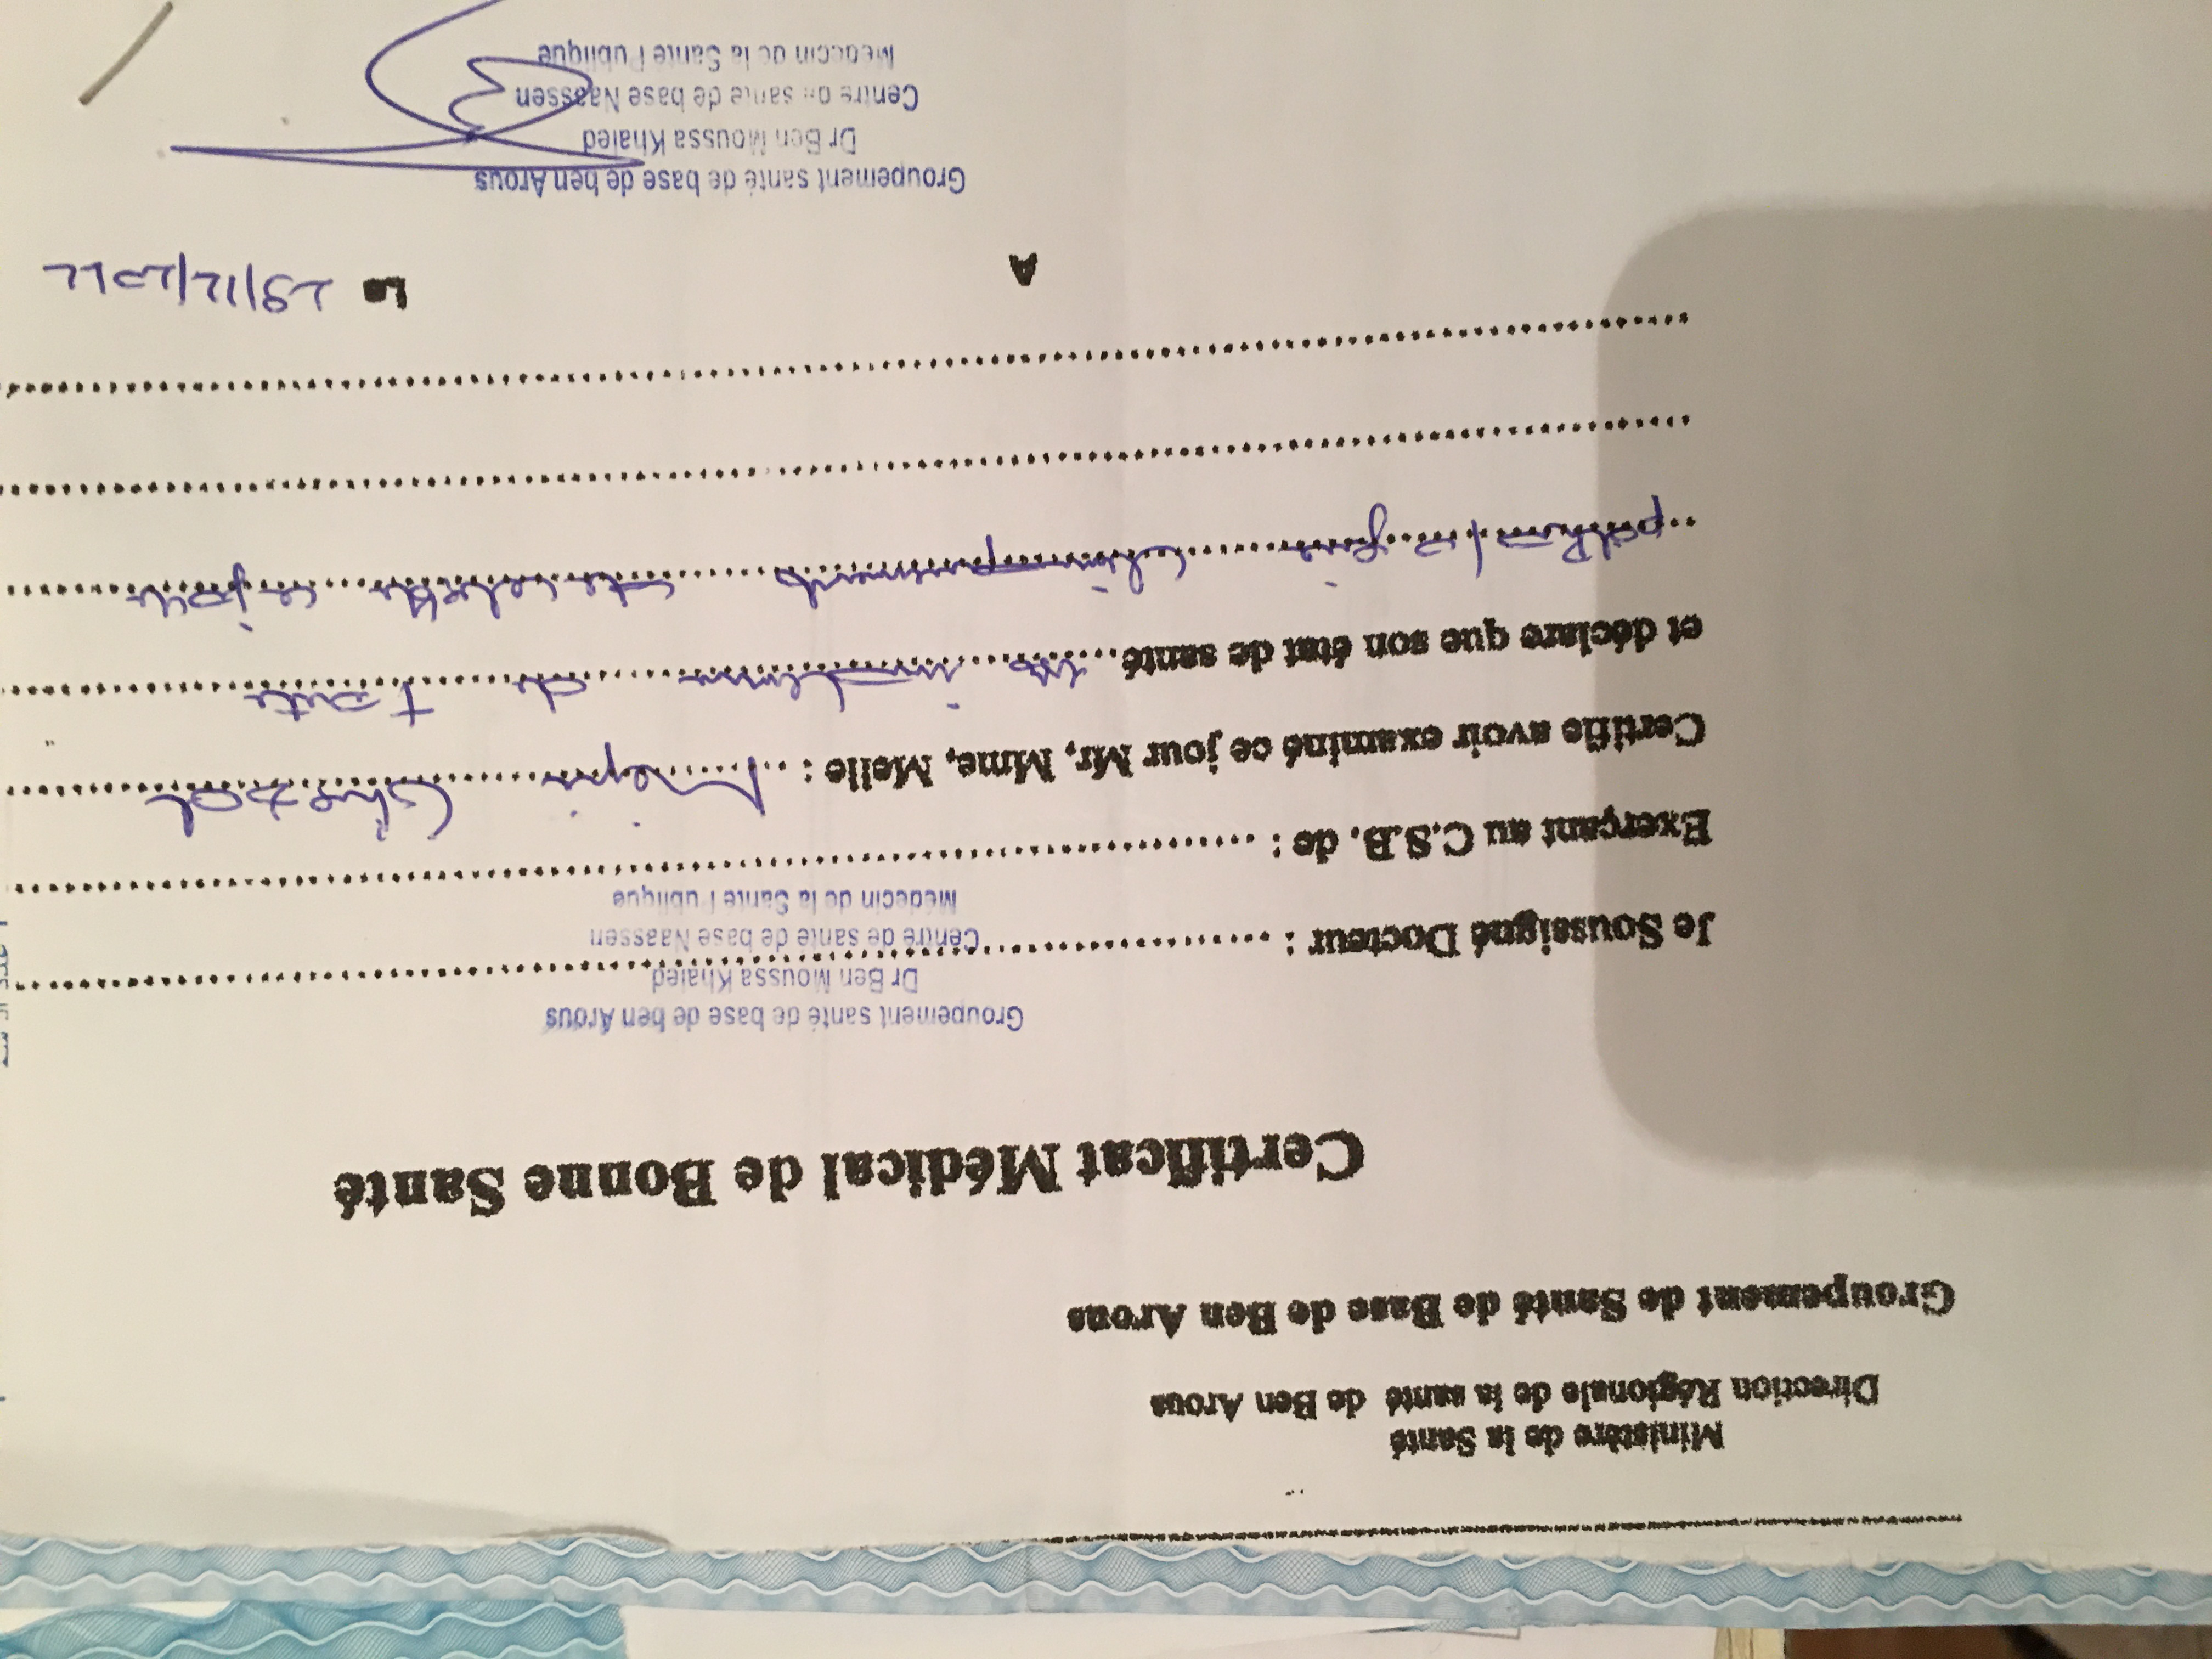 Ministère de la Santé
Direction Régionale de la santé de Ben Arous
Groupement de Santé de Base de Ben Arous
Certificat Médical de Bonne Santé
Groupement santé de base de ben Arous
Dr Ben Moussa Khaled
Je Soussigné Docteur :
Centre de santé de base Naassen
Médecin de la Santé Publique
Exerçant au C.S.B. de :
Certifie avoir examiné ce jour Mr, Mme, Melle :
et déclare que son état de santé est indemne de toute
cliniquement
A
Le 29/12/2022
Groupement santé de base de ben Arous
Dr Ben Moussa Khaled
Centre de santé de base Naassen
Médecin de la Santé Publique